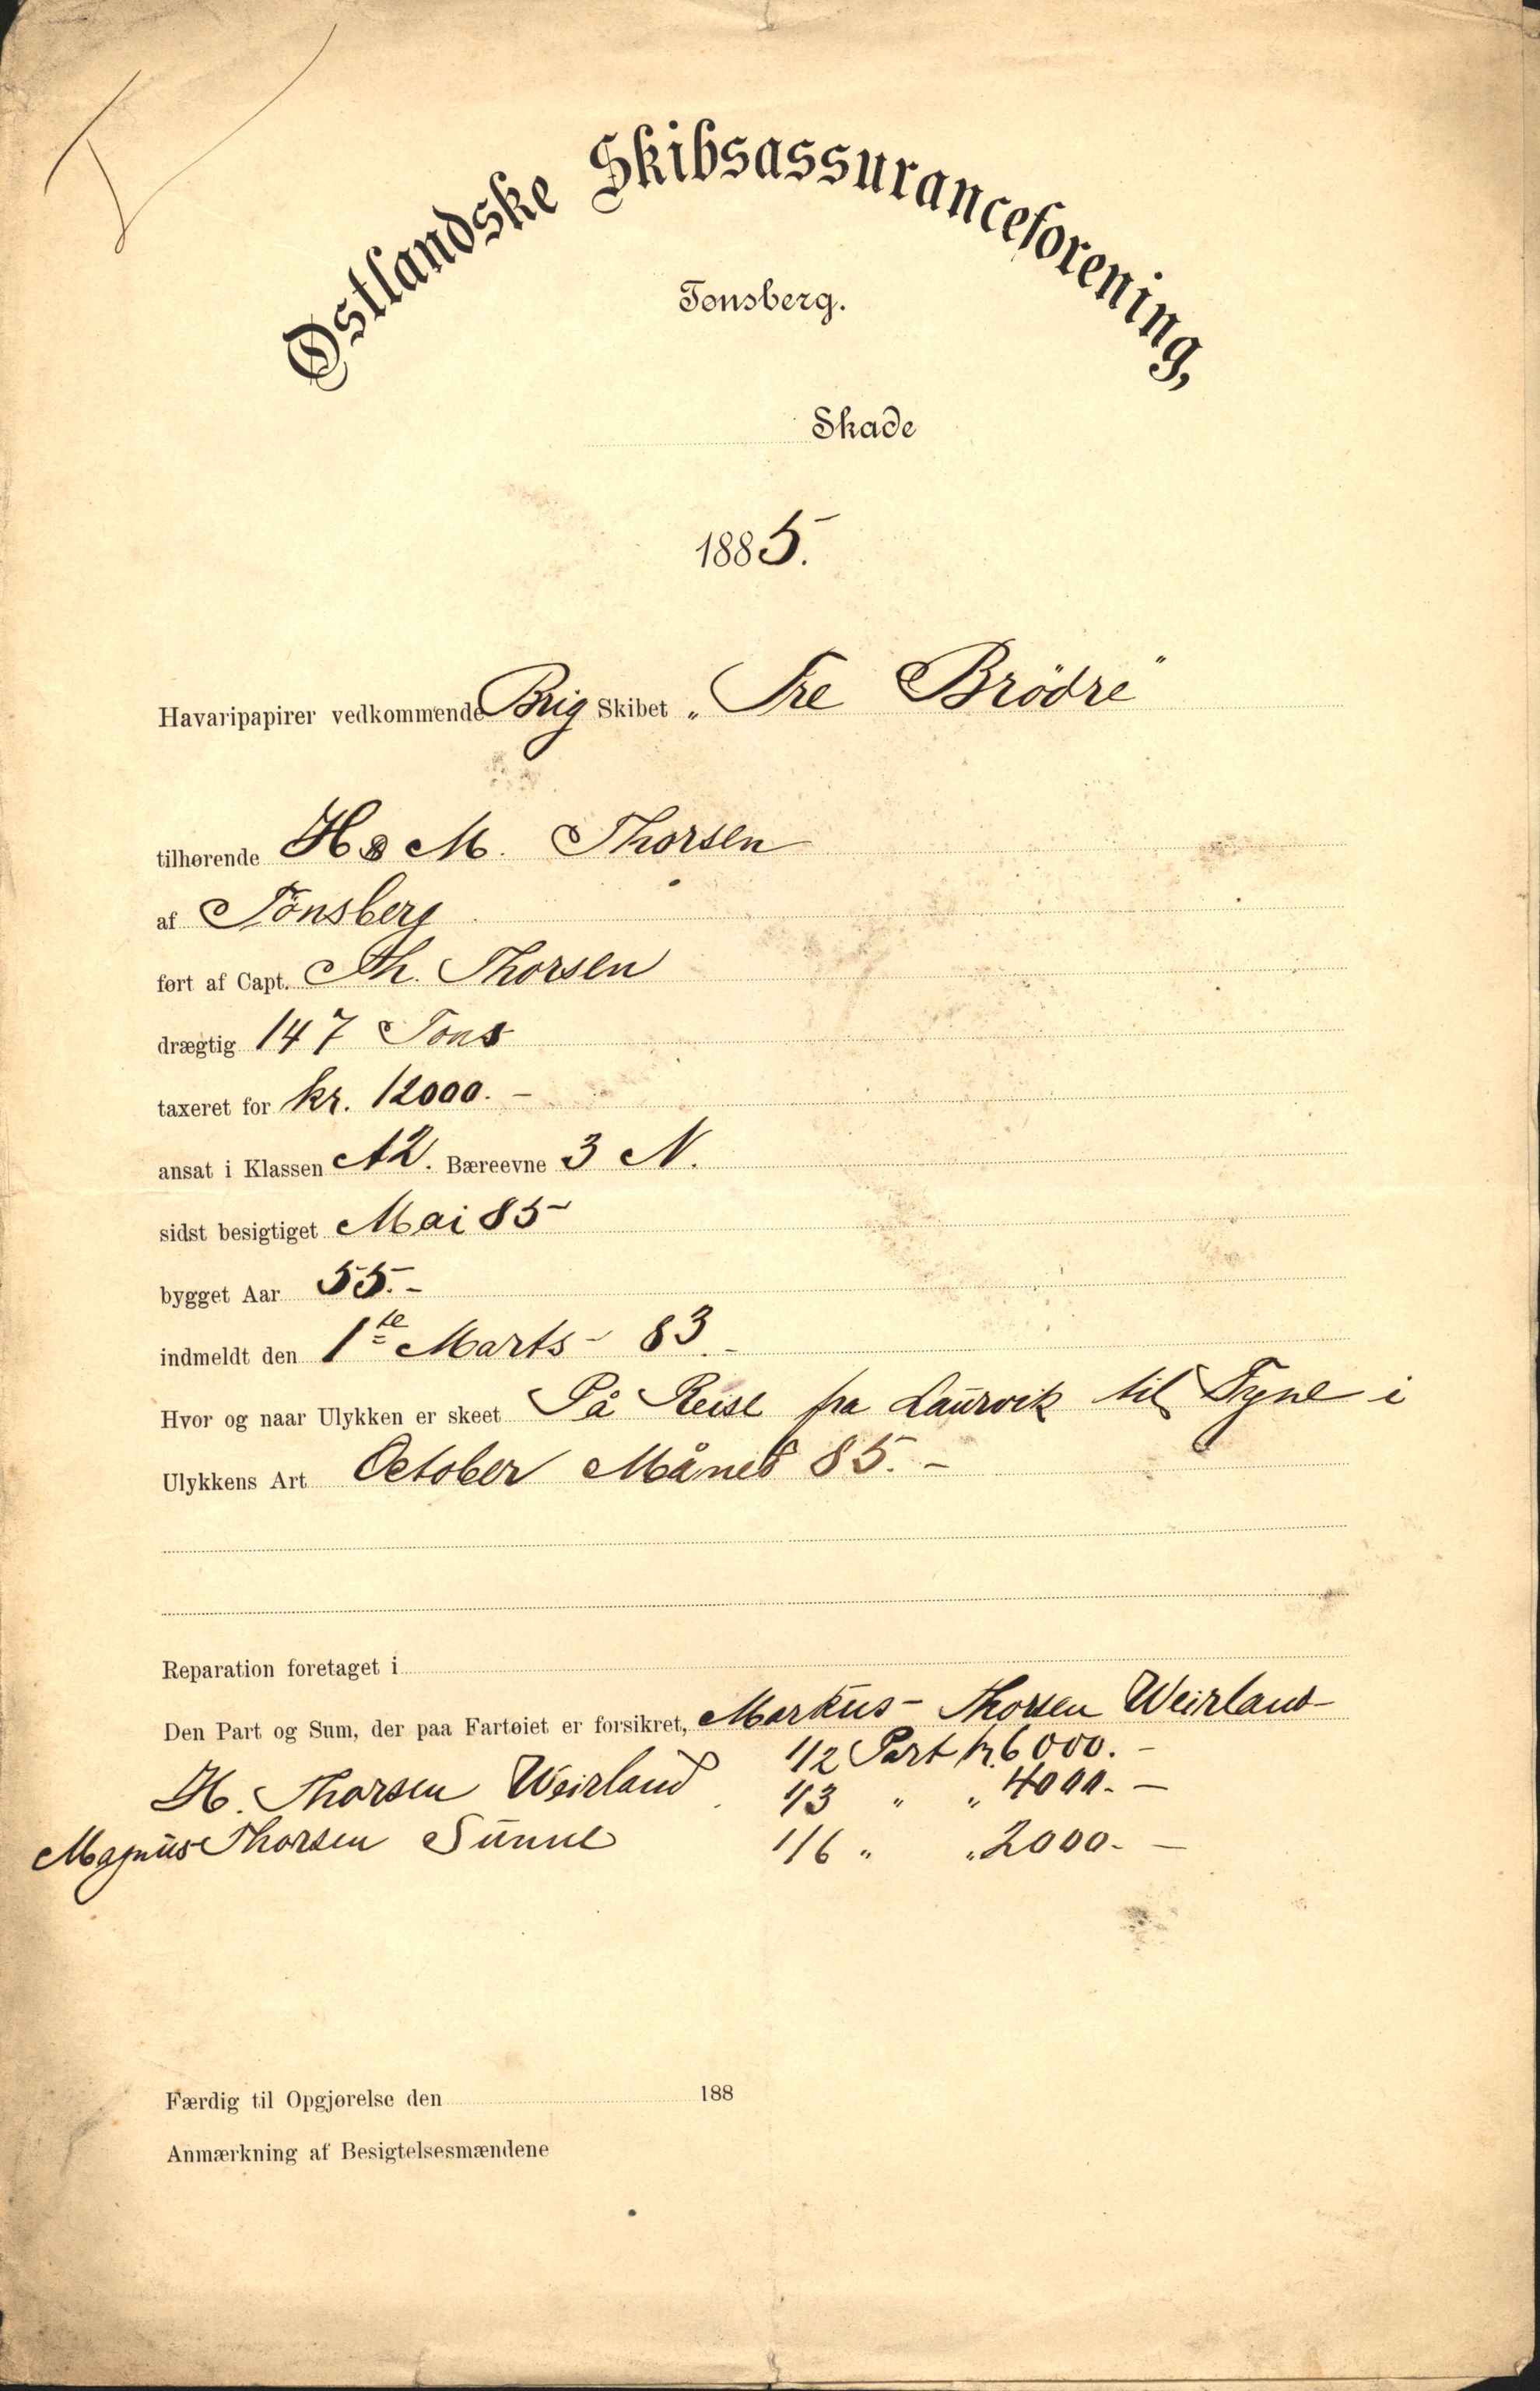 Østlandske Skibsassuranceforening,
Tønsberg.
Skade
1885.
Havaripapirer vedkommende Brig Skibet „Tre Brödre"
tilhørende H & M. Thorsen
af Tönsberg
ført af Capt. Th. Thorsen
drægtig 147 Tons
taxeret for kr. 12000.–
ansat i Klassen A2. Bæreevne 3 N.
sidst besigtiget Mai 85
bygget Aar 55.–
indmeldt den 1ste Marts 83.–
Hvor og naar Ulykken er skeet På Reise fra Laurvik til Tyne i
Ulykkens Art October Måned 85.–
Reparation foretaget i
Den Part og Sum, der paa Fartøiet er forsikret, Markus Thorsen Weirland
1/2 Part kr. 6000.–
H. Thorsen Weirland 1/3 „ „ 4000.–
Magnus Thorsen Sunne 1/6 „ „ 2000.–
Færdig til Opgjørelse den 188
Anmærkning af Besigtelsesmændene